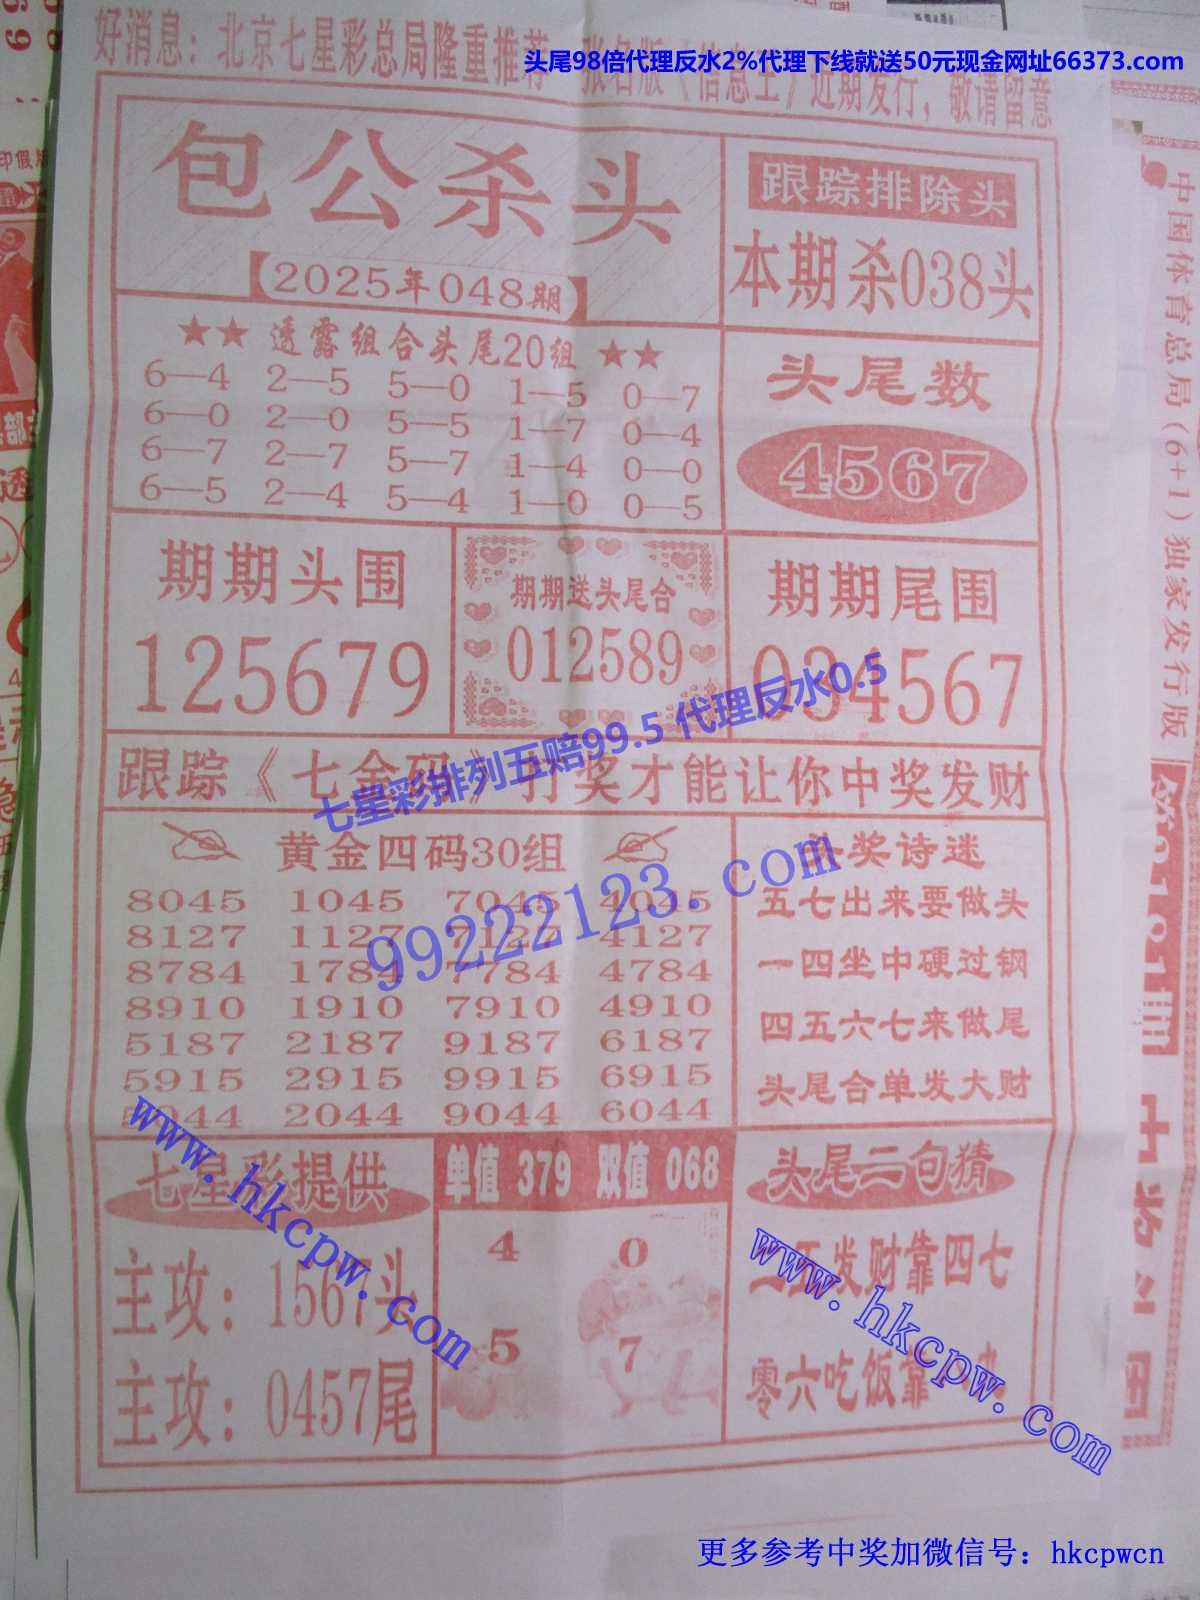 头尾98倍代理反水2%代理下线就送50元现金网址66373.com
好消息：北京七星彩总局隆重推荐 《信息王》近期发行，敬请留意
包公杀头
【2025年048期】
跟踪排除头
本期杀038头
★★ 透露组合头尾20组 ★★
6—4 2—5 5—0 1—5 0—7
6—0 2—0 5—5 1—7 0—4
6—7 2—7 5—7 1—4 0—0
6—5 2—4 5—4 1—0 0—5
头尾数
4567
期期头围
125679
期期送头尾合
012589
期期尾围
034567
七星彩排列五赔99.5 代理反水0.5
跟踪《七金码》打奖才能让你中奖发财
黄金四码30组
8045 1045 7045 4045
8127 1127 7127 4127
8784 1784 7784 4784
8910 1910 7910 4910
5187 2187 9187 6187
5915 2915 9915 6915
5044 2044 9044 6044
99222123.com
头奖诗迷
五七出来要做头
一四坐中硬过钢
四五六七来做尾
头尾合单发大财
七星彩提供
主攻：1567头
主攻：0457尾
单值 379 双值 068
4 0
5 7
头尾二句猜
二五发财靠四七
零六吃饭靠
www.hkcpw.com
www.hkcpw.com
中国体育总局(6+1)独家发行版
更多参考中奖加微信号：hkcpwcn